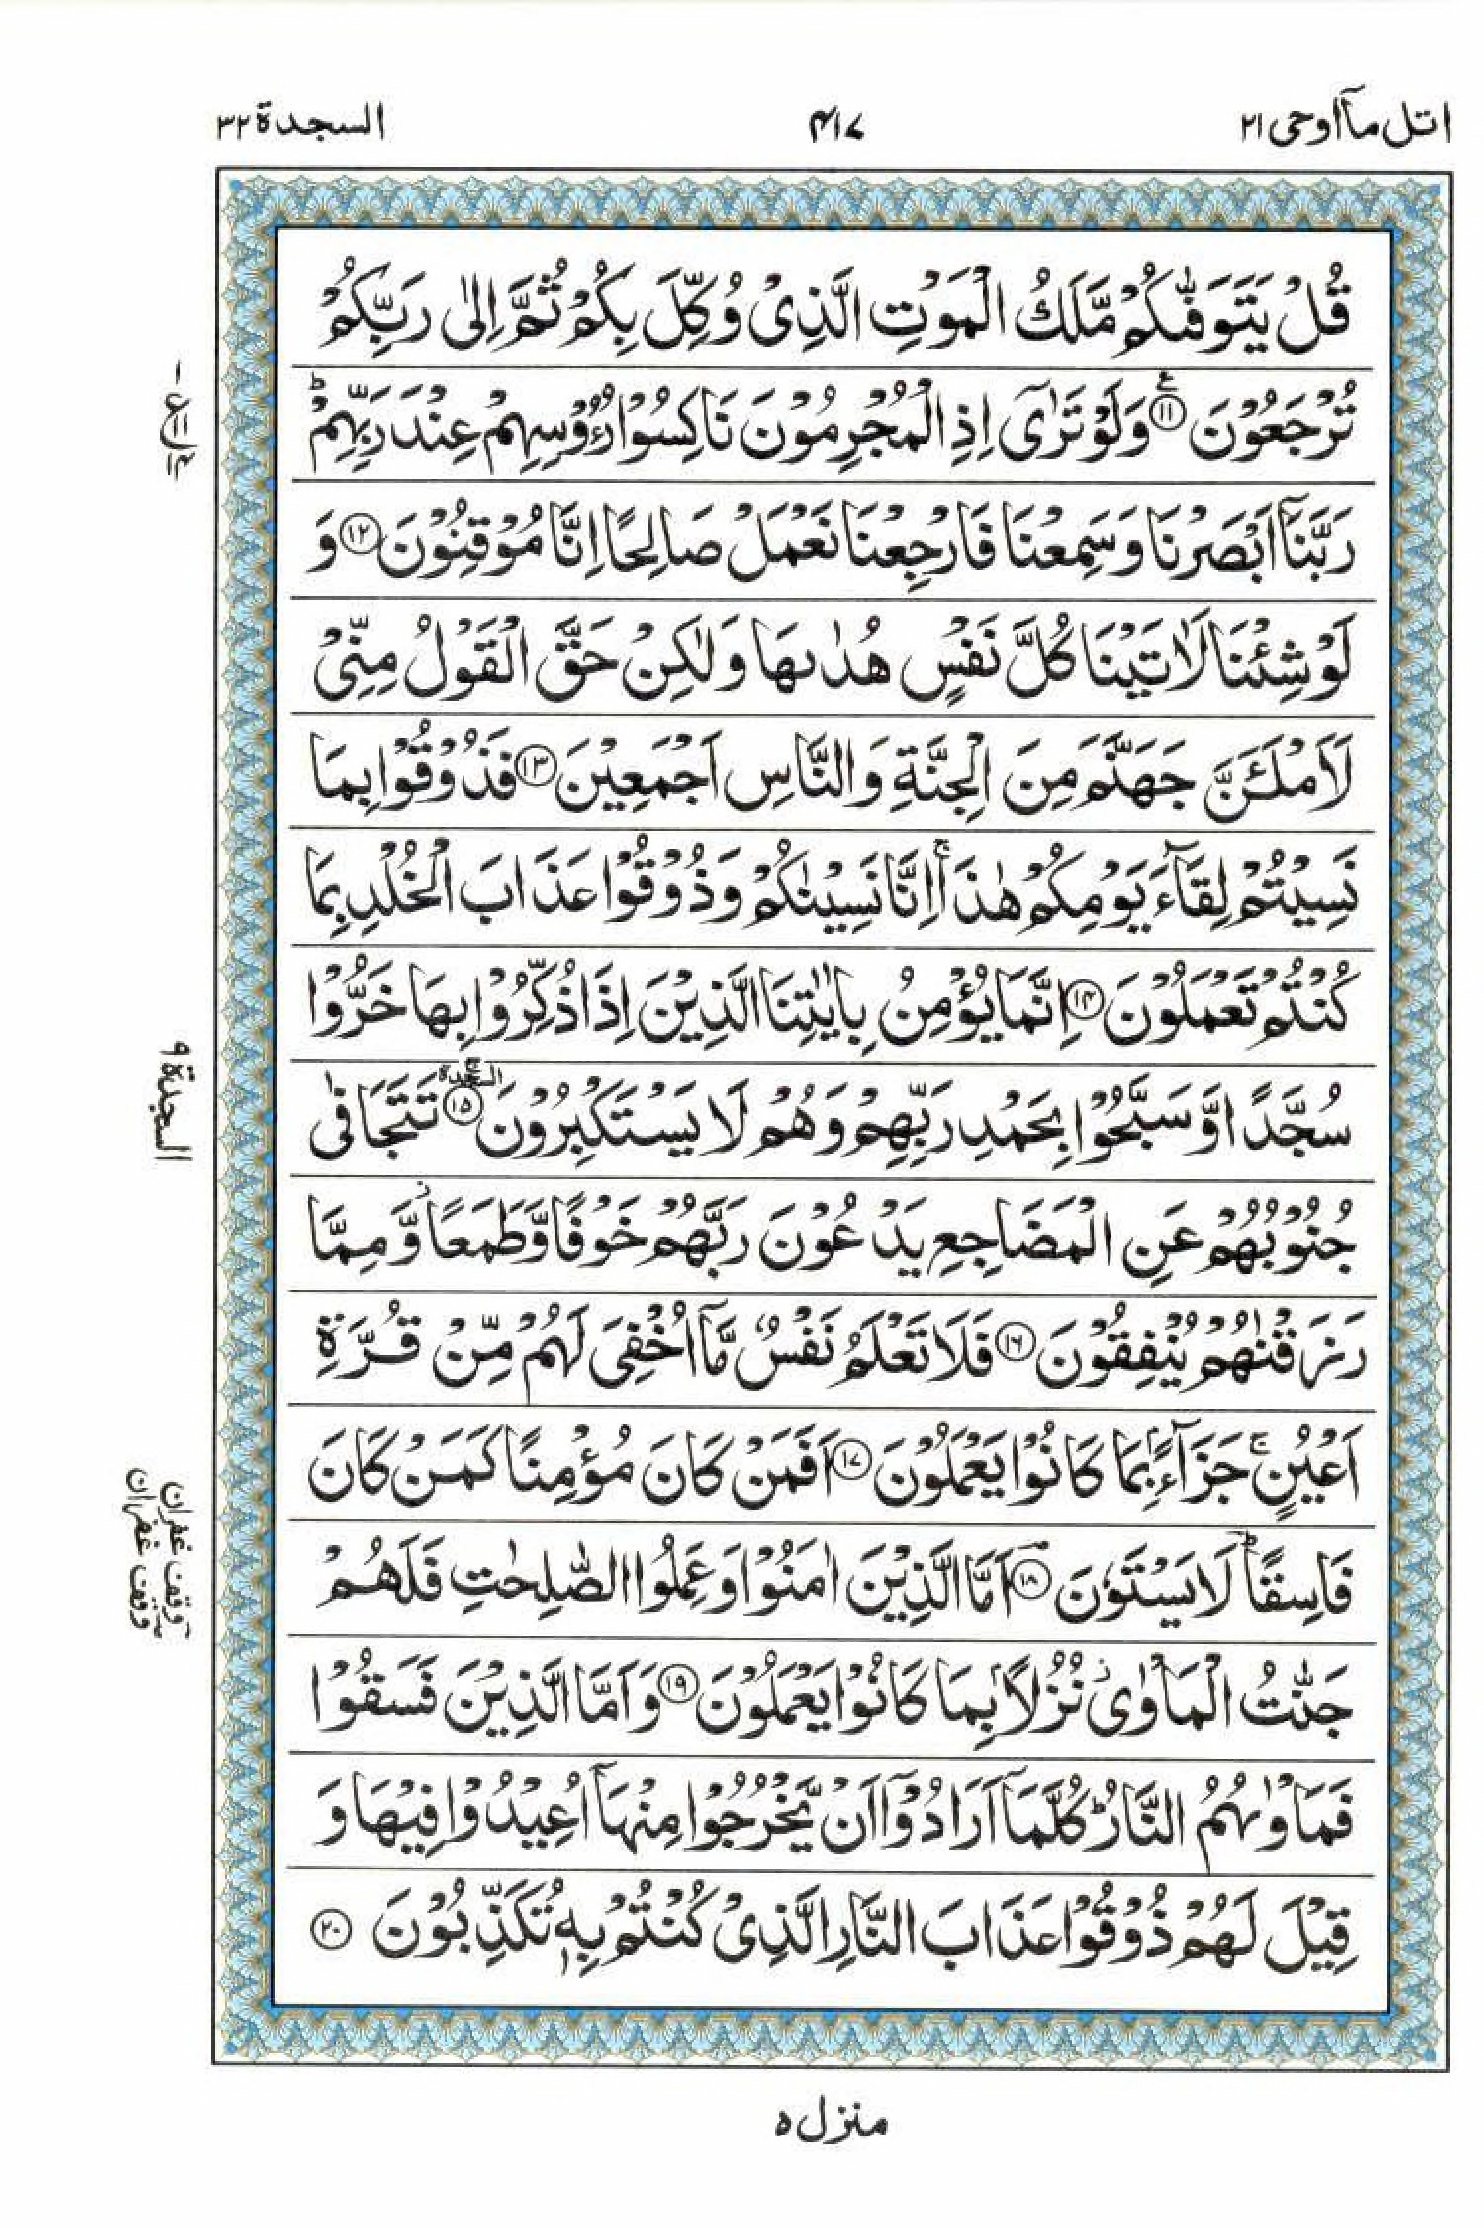 اتل مآاوحی ۲۱
۴۱۷
السجدة ۳۲
قُلْ يَتَوَفّٰىكُمْ مَّلَكُ الْمَوْتِ الَّذِىْ وُكِّلَ بِكُمْ ثُمَّ اِلٰى رَبِّكُمْ
تُرْجَعُوْنَ ۝۱۱ وَلَوْ تَرٰٓى اِذِ الْمُجْرِمُوْنَ نَاكِسُوْا رُءُوْسِهِمْ عِنْدَ رَبِّهِمْ ؕ
رَبَّنَاۤ اَبْصَرْنَا وَسَمِعْنَا فَارْجِعْنَا نَعْمَلْ صَالِحًا اِنَّا مُوْقِنُوْنَ ۝۱۲ وَ
لَوْ شِئْنَا لَاٰتَيْنَا كُلَّ نَفْسٍ هُدٰىهَا وَلٰكِنْ حَقَّ الْقَوْلُ مِنِّىْ
لَاَمْلَـَٔنَّ جَهَنَّمَ مِنَ الْجِنَّةِ وَالنَّاسِ اَجْمَعِيْنَ ۝۱۳ فَذُوْقُوْا بِمَا
نَسِيْتُمْ لِقَآءَ يَوْمِكُمْ هٰذَا ۚ اِنَّا نَسِيْنٰكُمْ وَذُوْقُوْا عَذَابَ الْخُلْدِ بِمَا
كُنْتُمْ تَعْمَلُوْنَ ۝۱۴ اِنَّمَا يُؤْمِنُ بِاٰيٰتِنَا الَّذِيْنَ اِذَا ذُكِّرُوْا بِهَا خَرُّوْا
سُجَّدًا وَّسَبَّحُوْا بِحَمْدِ رَبِّهِمْ وَهُمْ لَا يَسْتَكْبِرُوْنَ ۝۱۵ السجدة تَتَجَافٰى
جُنُوْبُهُمْ عَنِ الْمَضَاجِعِ يَدْعُوْنَ رَبَّهُمْ خَوْفًا وَّطَمَعًا ؗ وَّمِمَّا
رَزَقْنٰهُمْ يُنْفِقُوْنَ ۝۱۶ فَلَا تَعْلَمُ نَفْسٌ مَّاۤ اُخْفِىَ لَهُمْ مِّنْ قُرَّةِ
اَعْيُنٍ ۚ جَزَآءًۢ بِمَا كَانُوْا يَعْمَلُوْنَ ۝۱۷ اَفَمَنْ كَانَ مُؤْمِنًا كَمَنْ كَانَ
فَاسِقًا ؕ لَا يَسْتَوٗنَ ۝۱۸ اَمَّا الَّذِيْنَ اٰمَنُوْا وَعَمِلُوا الصّٰلِحٰتِ فَلَهُمْ
جَنّٰتُ الْمَاْوٰى ؗ نُزُلًاۢ بِمَا كَانُوْا يَعْمَلُوْنَ ۝۱۹ وَاَمَّا الَّذِيْنَ فَسَقُوْا
فَمَاْوٰىهُمُ النَّارُ ؕ كُلَّمَاۤ اَرَادُوْۤا اَنْ يَّخْرُجُوْا مِنْهَاۤ اُعِيْدُوْا فِيْهَا وَ
قِيْلَ لَهُمْ ذُوْقُوْا عَذَابَ النَّارِ الَّذِىْ كُنْتُمْ بِهٖ تُكَذِّبُوْنَ ۝۲۰
السجدة ۹
وقف غفران
وقف غفران
منزل ۵